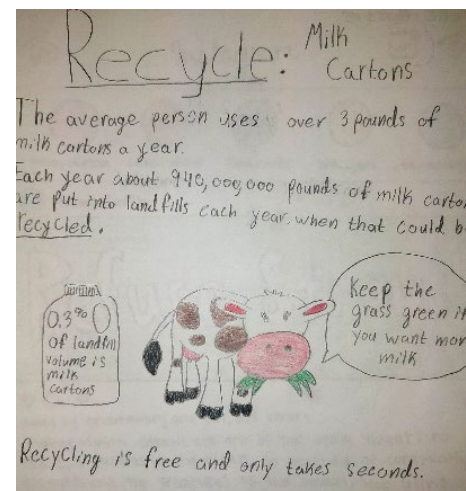 Recycle: Milk
Cartons
The average person uses over 3 pounds of
milk cartons a year.
Each year about 940,000,000 pounds of milk carto
are put into landfills each year. when that could b
recycled.
0.3%
of landfill
volume is
milk
cartons
Keep the
grass green if
you want mor
milk
Recycling is free and only takes seconds.